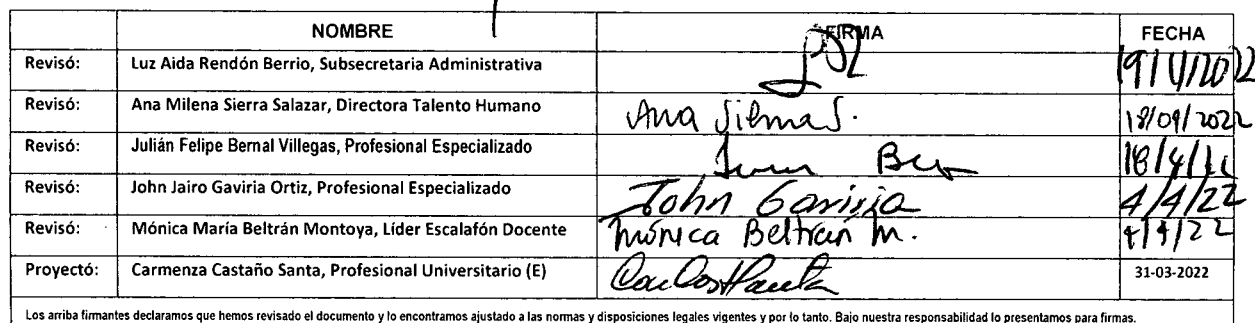 NOMBRE FIRMA FECHA
Revisó: Luz Aida Rendón Berrio, Subsecretaria Administrativa 19/4/2022
Revisó: Ana Milena Sierra Salazar, Directora Talento Humano Ana 18/04/2022
Revisó: Julián Felipe Bernal Villegas, Profesional Especializado
Revisó: John Jairo Gaviria Ortiz, Profesional Especializado John Gaviria 4/4/22
Revisó: Mónica María Beltrán Montoya, Líder Escalafón Docente Mónica Beltrán M. 4/4/22
Proyectó: Carmenza Castaño Santa, Profesional Universitario (E) 31-03-2022
Los arriba firmantes declaramos que hemos revisado el documento y lo encontramos ajustado a las normas y disposiciones legales vigentes y por lo tanto. Bajo nuestra responsabilidad lo presentamos para firmas.